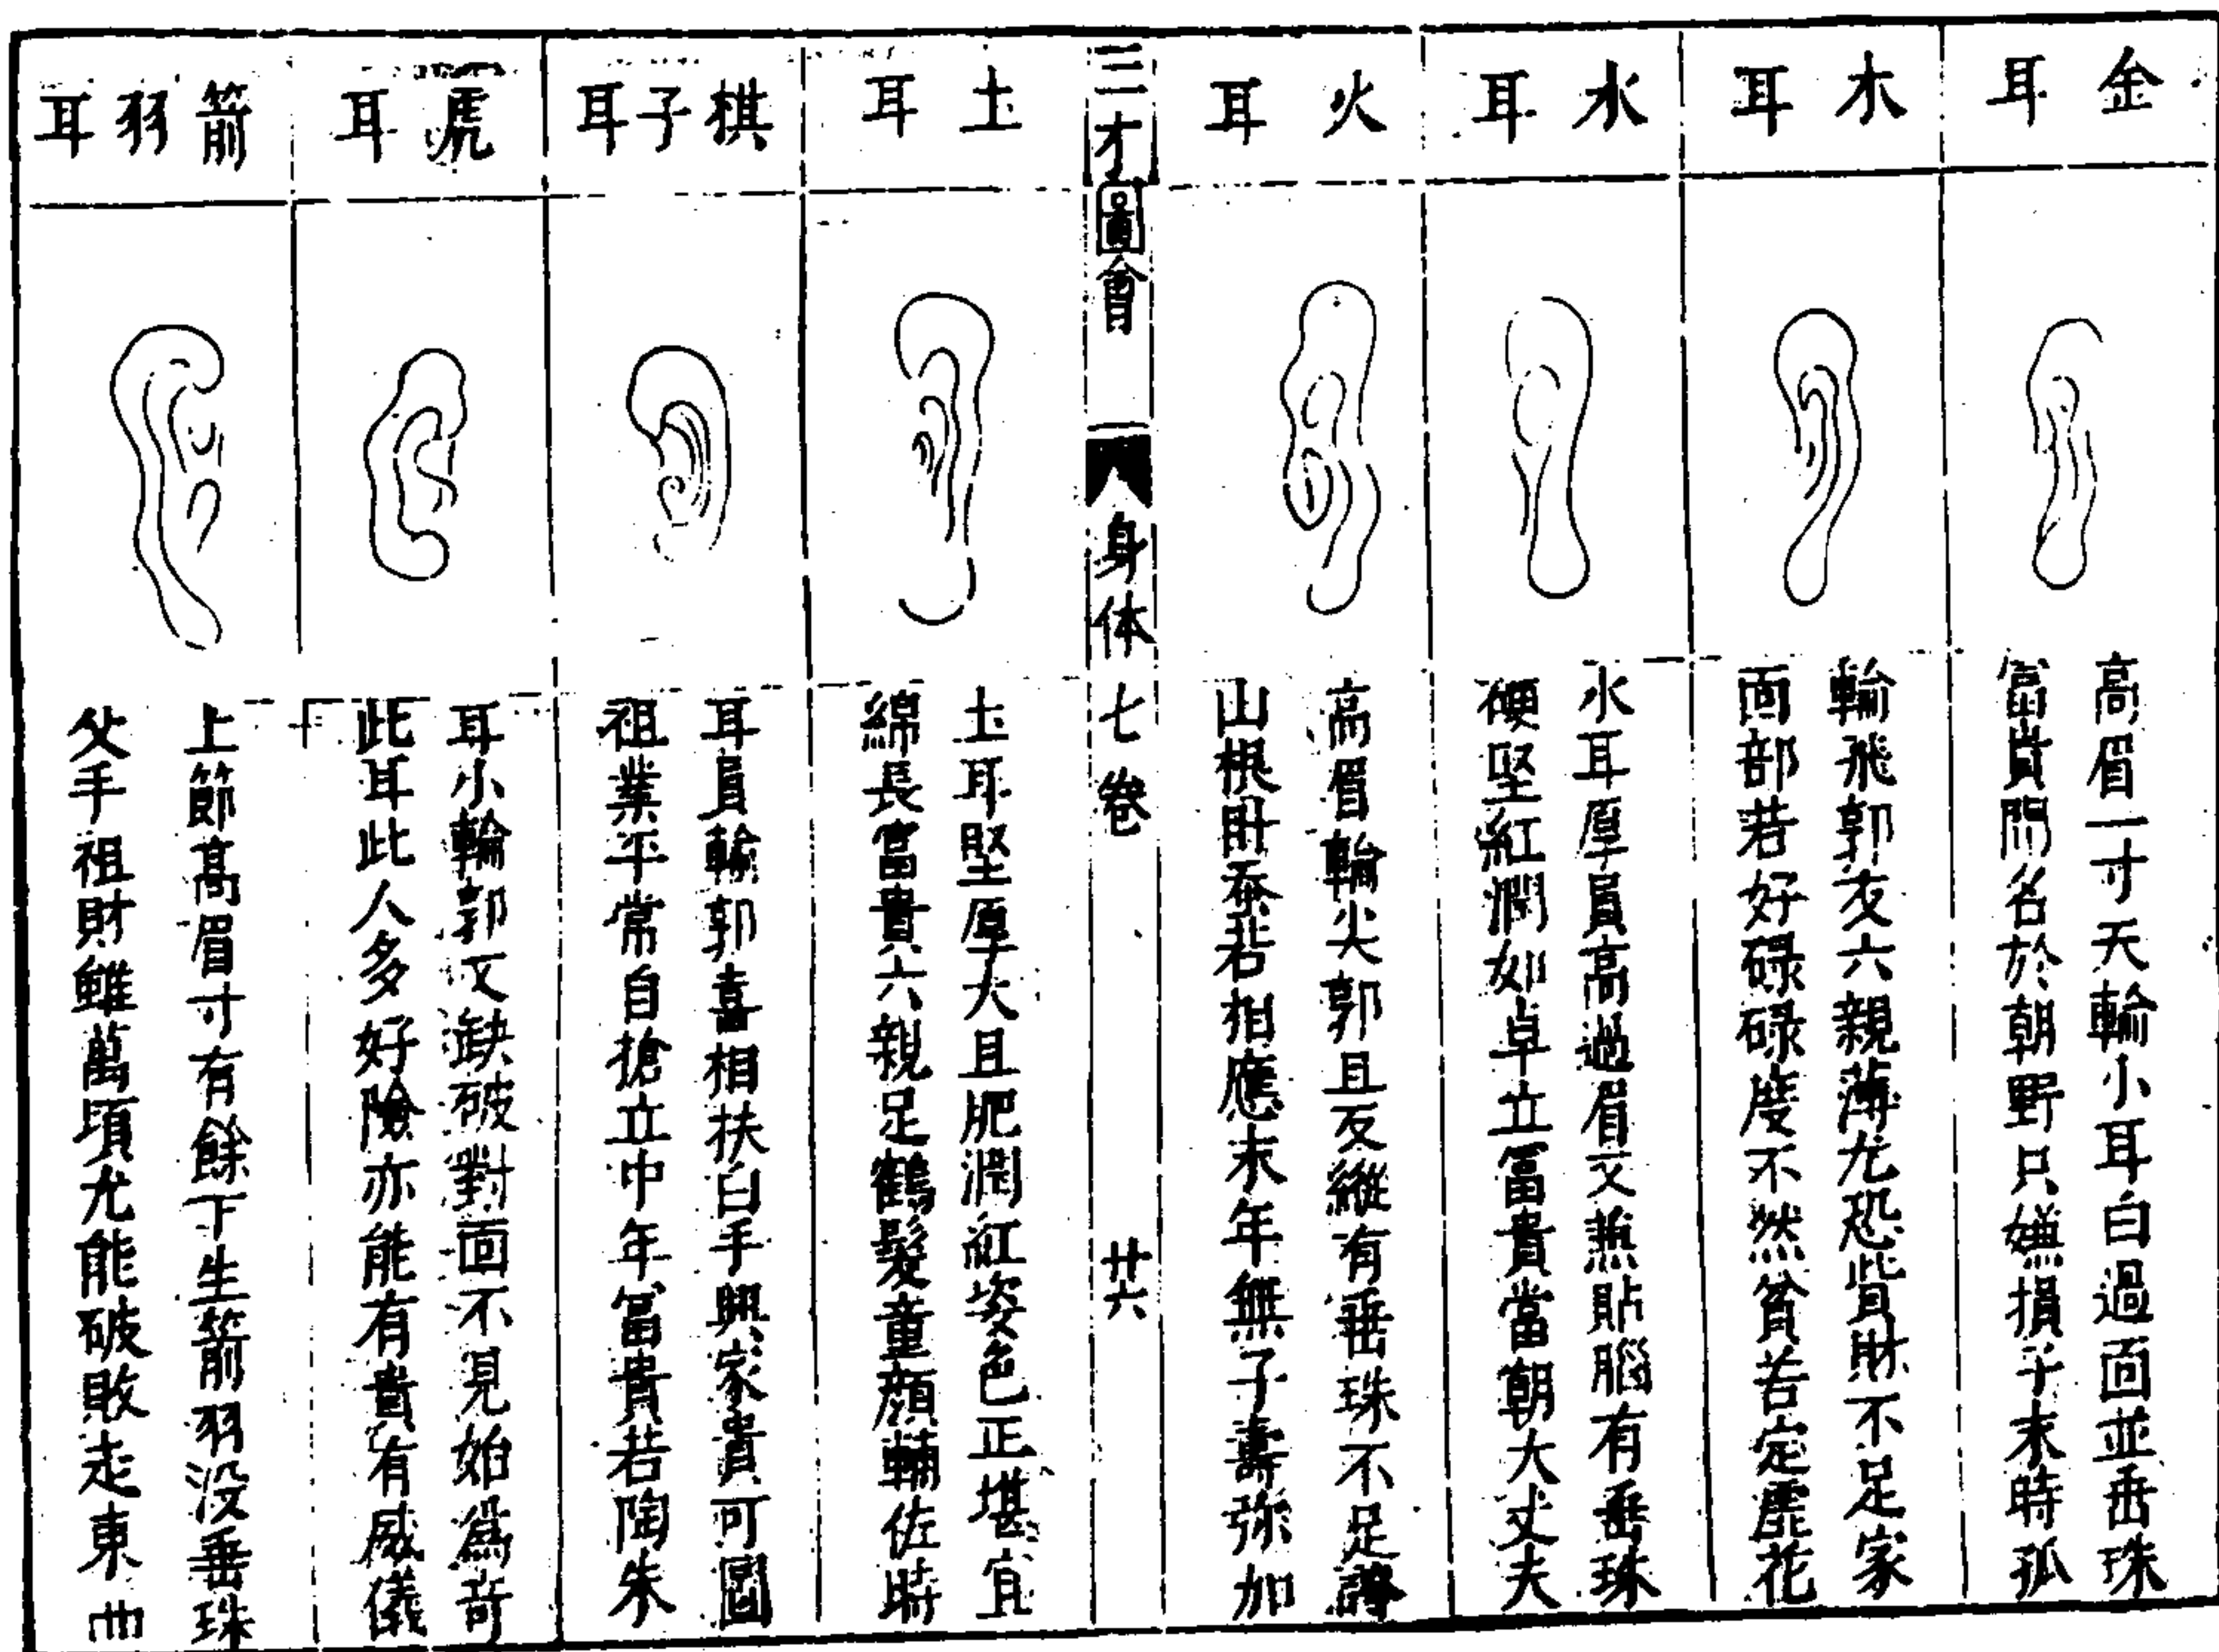 金耳
高眉一寸天輪小耳白過面並垂珠
富貴聞名於朝野只嫌損子末時孤
木耳
輪飛郭反六親薄尤恐貲財不足家
面部若好碌碌度不然貧苦定虛花
水耳
水耳厚員高過眉又兼貼腦有垂珠
硬堅紅潤如卓立富貴當朝大丈夫
火耳
高眉輪尖郭且反縱有垂珠不足誇
山根卧蚕若相應末年無子壽弥加
三才圖會
身体七卷
廿六
土耳
土耳堅厚大且肥潤紅姿色正堪宜
綿長富貴六親足鶴髮童顔輔佐時
棋子耳
耳員輪郭喜相扶白手興家貴可圖
祖業平常自搶立中年富貴若陶朱
虎耳
耳小輪郭又缺破對面不見始為奇
此耳此人多好險亦能有貴有威儀
箭羽耳
上節高眉寸有餘下生箭羽没垂珠
父手祖財雖萬頃尤能破敗走東